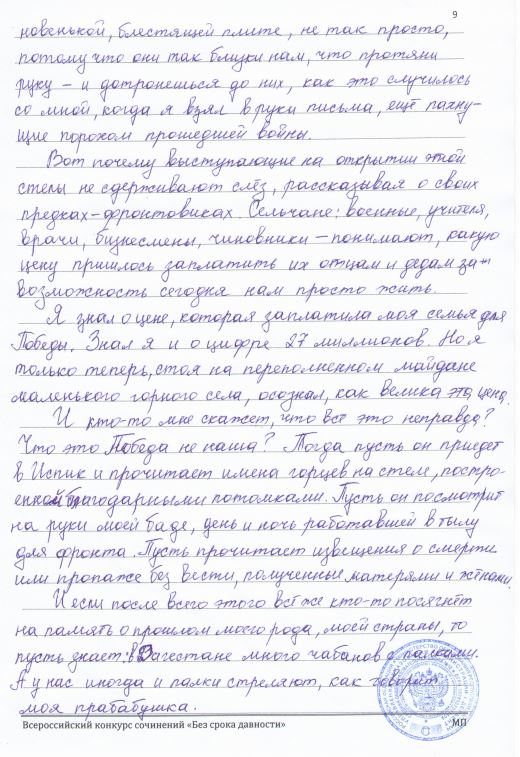 9
новенькой, блестящей плите, не так просто,
потому что они так близки нам, что протяни
руку – и дотронешься до них, как это случилось
со мной, когда я взял в руки письма, ещё пахну-
щие порохом прошедшей войны.
Вот почему выступающие на открытии этой
стелы не сдерживают слёз, рассказывая о своих
предках-фронтовиках. Сельчане: военные, учителя,
врачи, бизнесмены, чиновники – понимают, какую
цену пришлось заплатить их отцам и дедам за
возможность сегодня нам просто жить.
Я знал о цене, которая заплатила моя семья для
Победы. Знал я и о цифре 27 миллионов. Но я
только теперь, стоя на переполненном майдане
маленького горного села, осознал, как велика эта цена.
И кто-то мне скажет, что всё это неправда?
Что это Победа не наша? Тогда пусть он приедет
в Испик и прочитает имена горцев на стеле, постро-
енной благодарными потомками. Пусть он посмотрит
на руки моей баде, день и ночь работавшей в тылу
для фронта. Пусть прочитает извещения о смерти
или пропаже без вести, полученные матерями и жёнами.
И если после всего этого всё же кто-то посягнёт
на память о прошлом моего рода, моей страны, то
пусть знает: в Дагестане много чабанов с палками.
А у нас иногда и палки стреляют, как говорит
моя прабабушка.
Всероссийский конкурс сочинений «Без срока давности»
МП